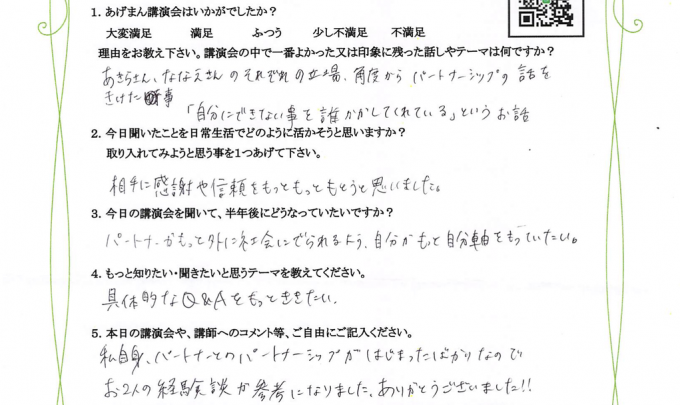 1. あげまん講演会はいかがでしたか？
大変満足　　満足　　ふつう　　少し不満足　　不満足
理由をお教え下さい。講演会の中で一番よかった又は印象に残った話しやテーマは何ですか？
あきらさん、ななえさんのそれぞれの立場、角度からパートナーシップの話を
きけた事
「自分にできない事を誰かがしてくれている」というお話
2. 今日聞いたことを日常生活でどのように活かそうと思いますか？
取り入れてみようと思う事を1つあげて下さい。
相手に感謝や信頼をもっともっともとうと思いました。
3. 今日の講演会を聞いて、半年後にどうなっていたいですか？
パートナーがもっと外に社会にでられるよう、自分がもっと自分軸をもっていたい。
4. もっと知りたい・聞きたいと思うテーマを教えてください。
具体的なQ&Aをもっとききたい。
5. 本日の講演会や、講師へのコメント等、ご自由にご記入ください。
私自身、パートナーとのパートナーシップがはじまったばかりなので
お2人の経験談が参考になりました、ありがとうございました!!